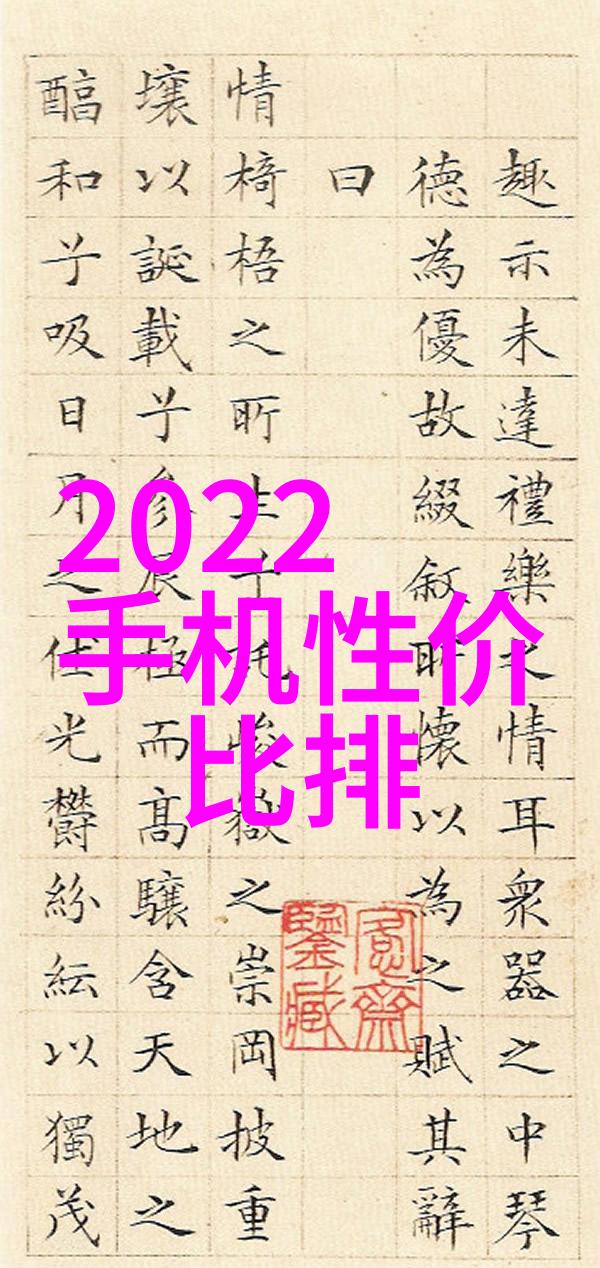 趣示未達禮樂之情耳衆器之中琴
德為優故綴叙所懷以為之賦其辭
曰
情椅梧之所生于託峻嶽之崇岡披重
壤以誕載兮參辰極而高驤含天地之
醕和兮吸日月之休光鬱紛紜以獨茂
2022
手机性价
比排